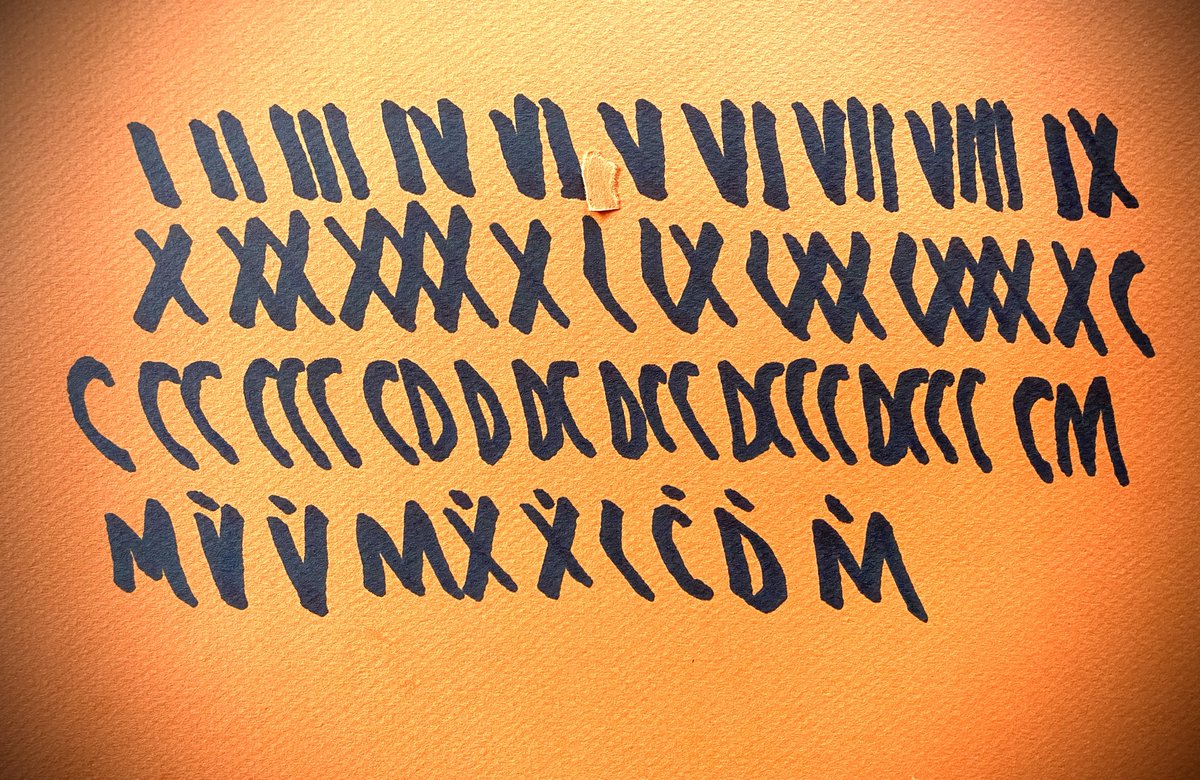 I II III IV VI V VI VII VIII IX
X XX XXX X L LX LXX LXXX XC
C CC CCC CD D DC DCC DCCC DCCC CM
MV̇ V̇ MẊ Ẋ L Ċ Ḋ Ṁ